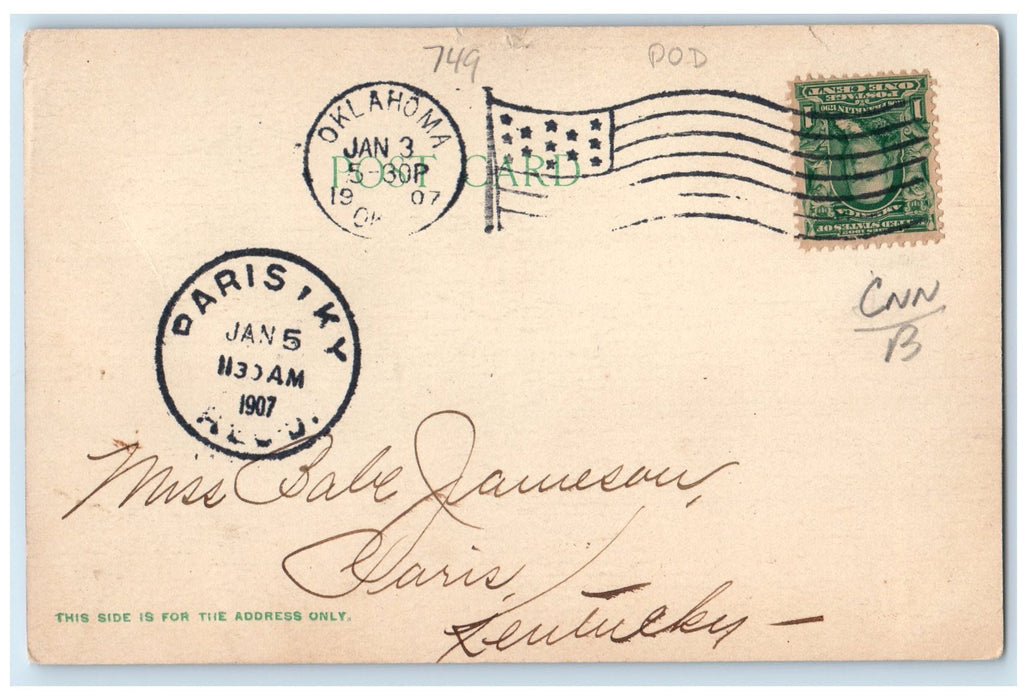 749
POD
OKLAHOMA
JAN 3
5-30P
1907
OK
POST CARD
POSTAGE
ONE CENT
1 1
UNITED STATES OF
AMERICA
PARIS, KY
JAN 5
1130 AM
1907
REC'D.
CNN
B
Miss Babe Jameson,
Paris,
Kentucky —
THIS SIDE IS FOR THE ADDRESS ONLY.